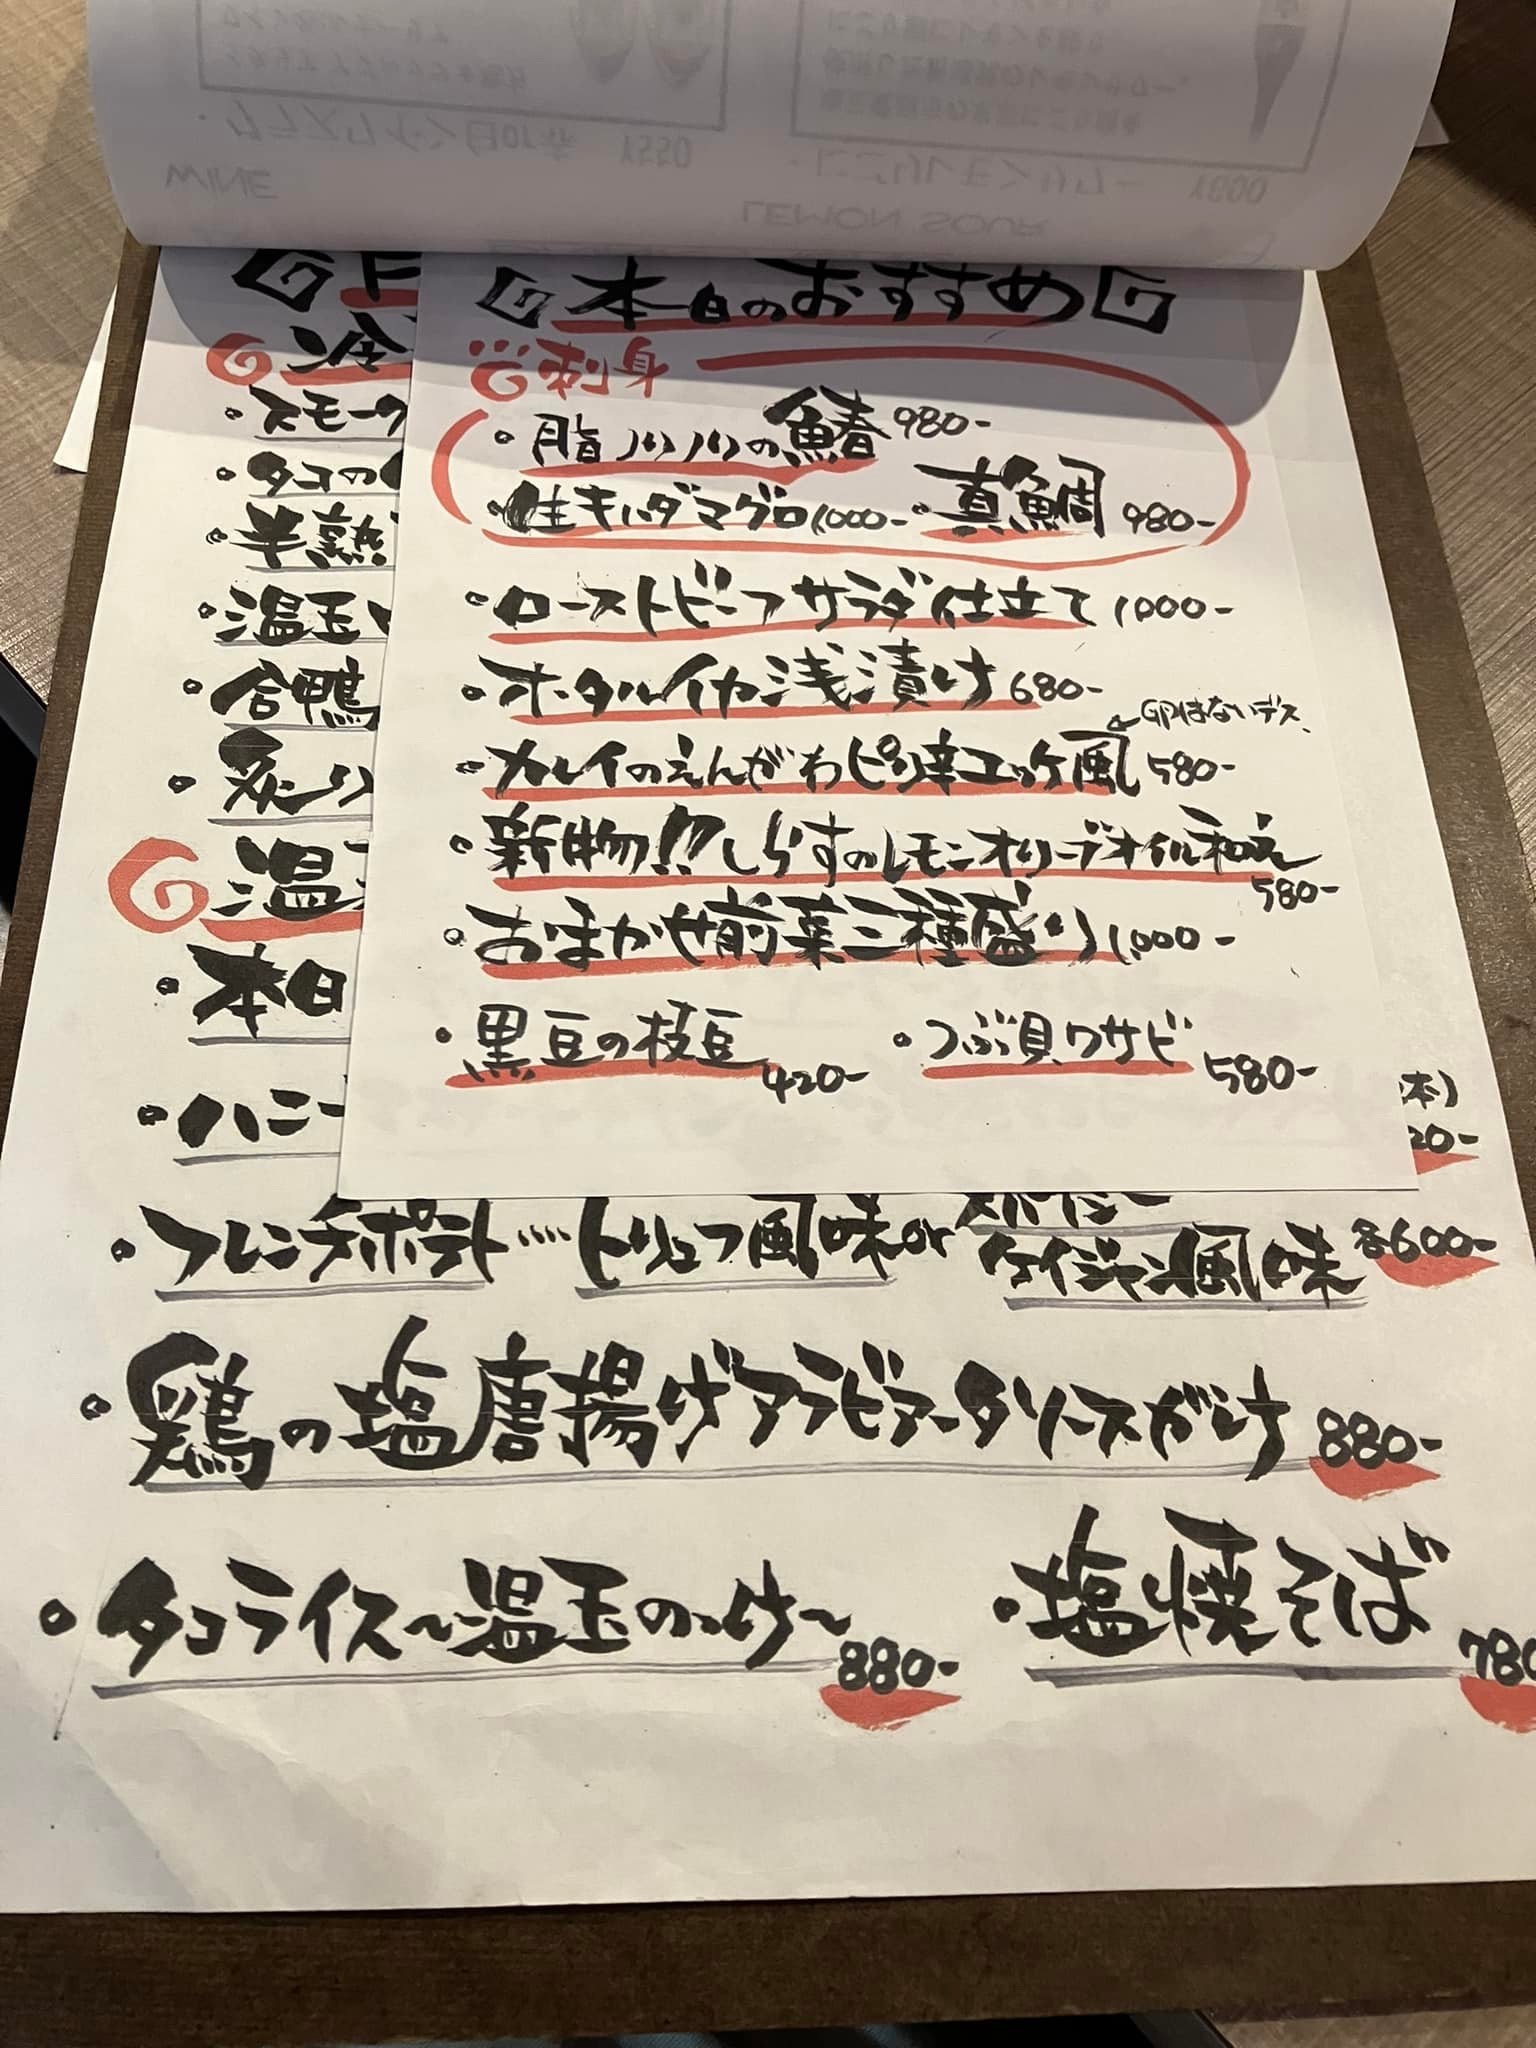 本日のおすすめ
刺身
脂ノリノリの鰆 980-
生キハダマグロ 1,000-
真鯛 980-
ローストビーフサラダ仕立て 1,000-
ホタルイカ浅漬け 680-
カレイのえんがわピリ辛ユッケ風 580-
はないデス
新物!!しらすのレモンオリーブオイル和え
580-
おまかせ前菜三種盛り 1,000-
黒豆の枝豆 420-
つぶ貝ワサビ 580-
冷
スモーク
タコの
半熟
温玉
合鴨
炙り
温
本日
ハニー
本)
20-
フレンチポテト····トリュフ風味or
ケイジャン風味 各600-
鶏の塩唐揚げアラビアータソースがけ 880-
タコライス〜温玉のっけ〜 880-
塩焼そば 780
WINE
グラスワイン 白or赤 ¥550
LEMON SOUR
にごりレモンサワー ¥600